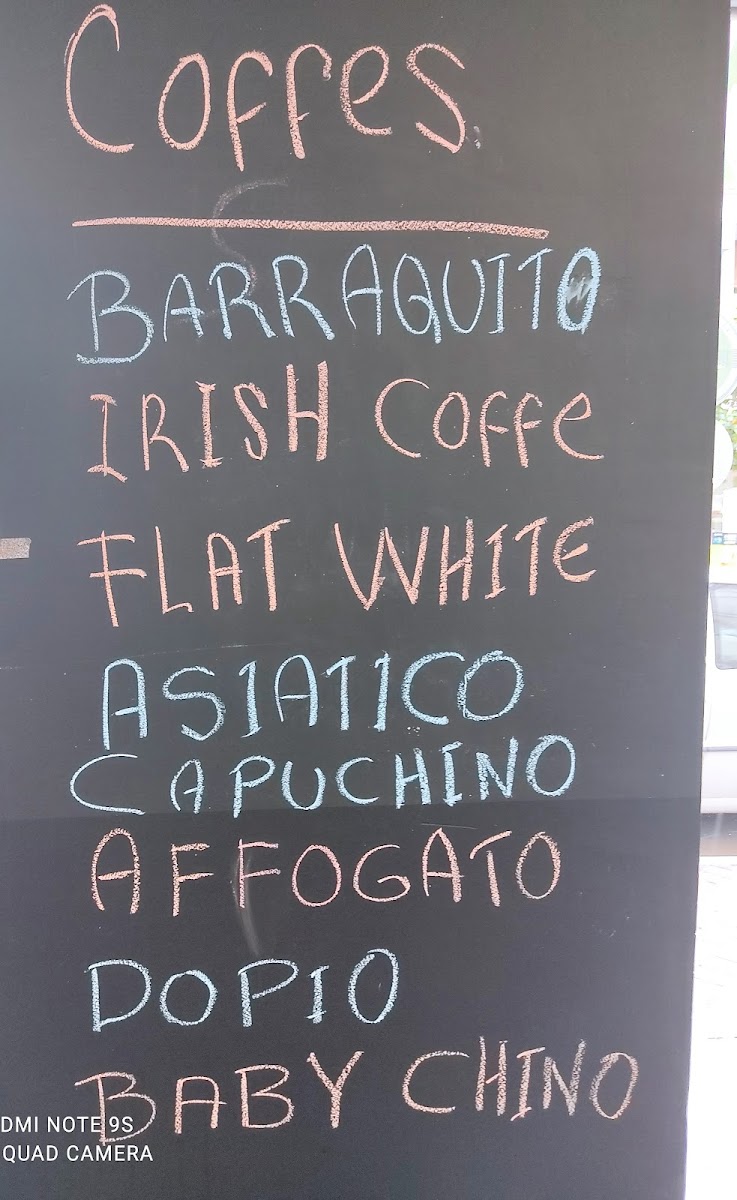 Coffes
BARRAQUITO
IRISH COFFe
FLAT WHITE
ASIATICO
CAPUCHINO
AFFOGATO
DOPIO
BABY CHINO
DMI NOTE 9S
QUAD CAMERA